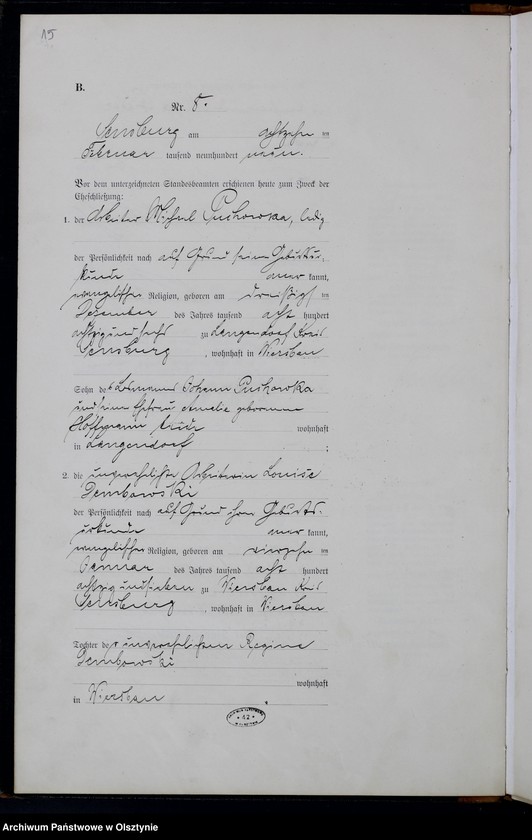 15
B.
Nr. 8.
Sensburg am achtzehnten
Februar tausend neunhundert neun.
Vor dem unterzeichneten Standesbeamten erschienen heute zum Zweck der
Eheschließung:
1. der Arbeiter Michael Puchowka, ledig
der Persönlichkeit nach auf Grund seiner Geburtsur-
kunde aner kannt,
evangelischer Religion, geboren am dreißigsten
Dezember des Jahres tausend acht hundert
achtzig und sechs zu Langendorf Kreis
Sensburg, wohnhaft in Wiersbau
Sohn des Losmanns Johann Puchowka
und seiner Ehefrau Amalie geborenen
Hoffmann beide wohnhaft
in Langendorf ;
2. die unverehelichte Arbeiterin Louise
Dembowski
der Persönlichkeit nach auf Grund ihrer Geburts-
urkunde aner kannt,
evangelischer Religion, geboren am vierzehnten
Januar des Jahres tausend acht hundert
achtzig und sieben zu Wiersbau Kreis
Sensburg, wohnhaft in Wiersbau
Tochter der unverehelichten Regine
Dembowski
wohnhaft
in Wiersbau
* 42 *
Archiwum Państwowe w Olsztynie